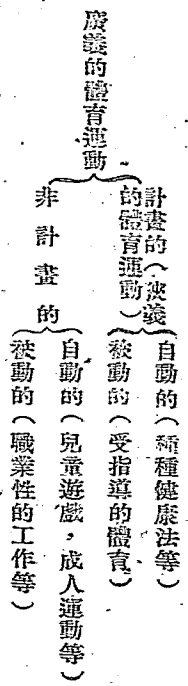 廣義的體育運動
計畫的（狹義
的體育運動）
自動的（種種健康法等）
被動的（受指導的體育）
非計畫的
自動的（兒童遊戲，成人運動等）
被動的（職業性的工作等）